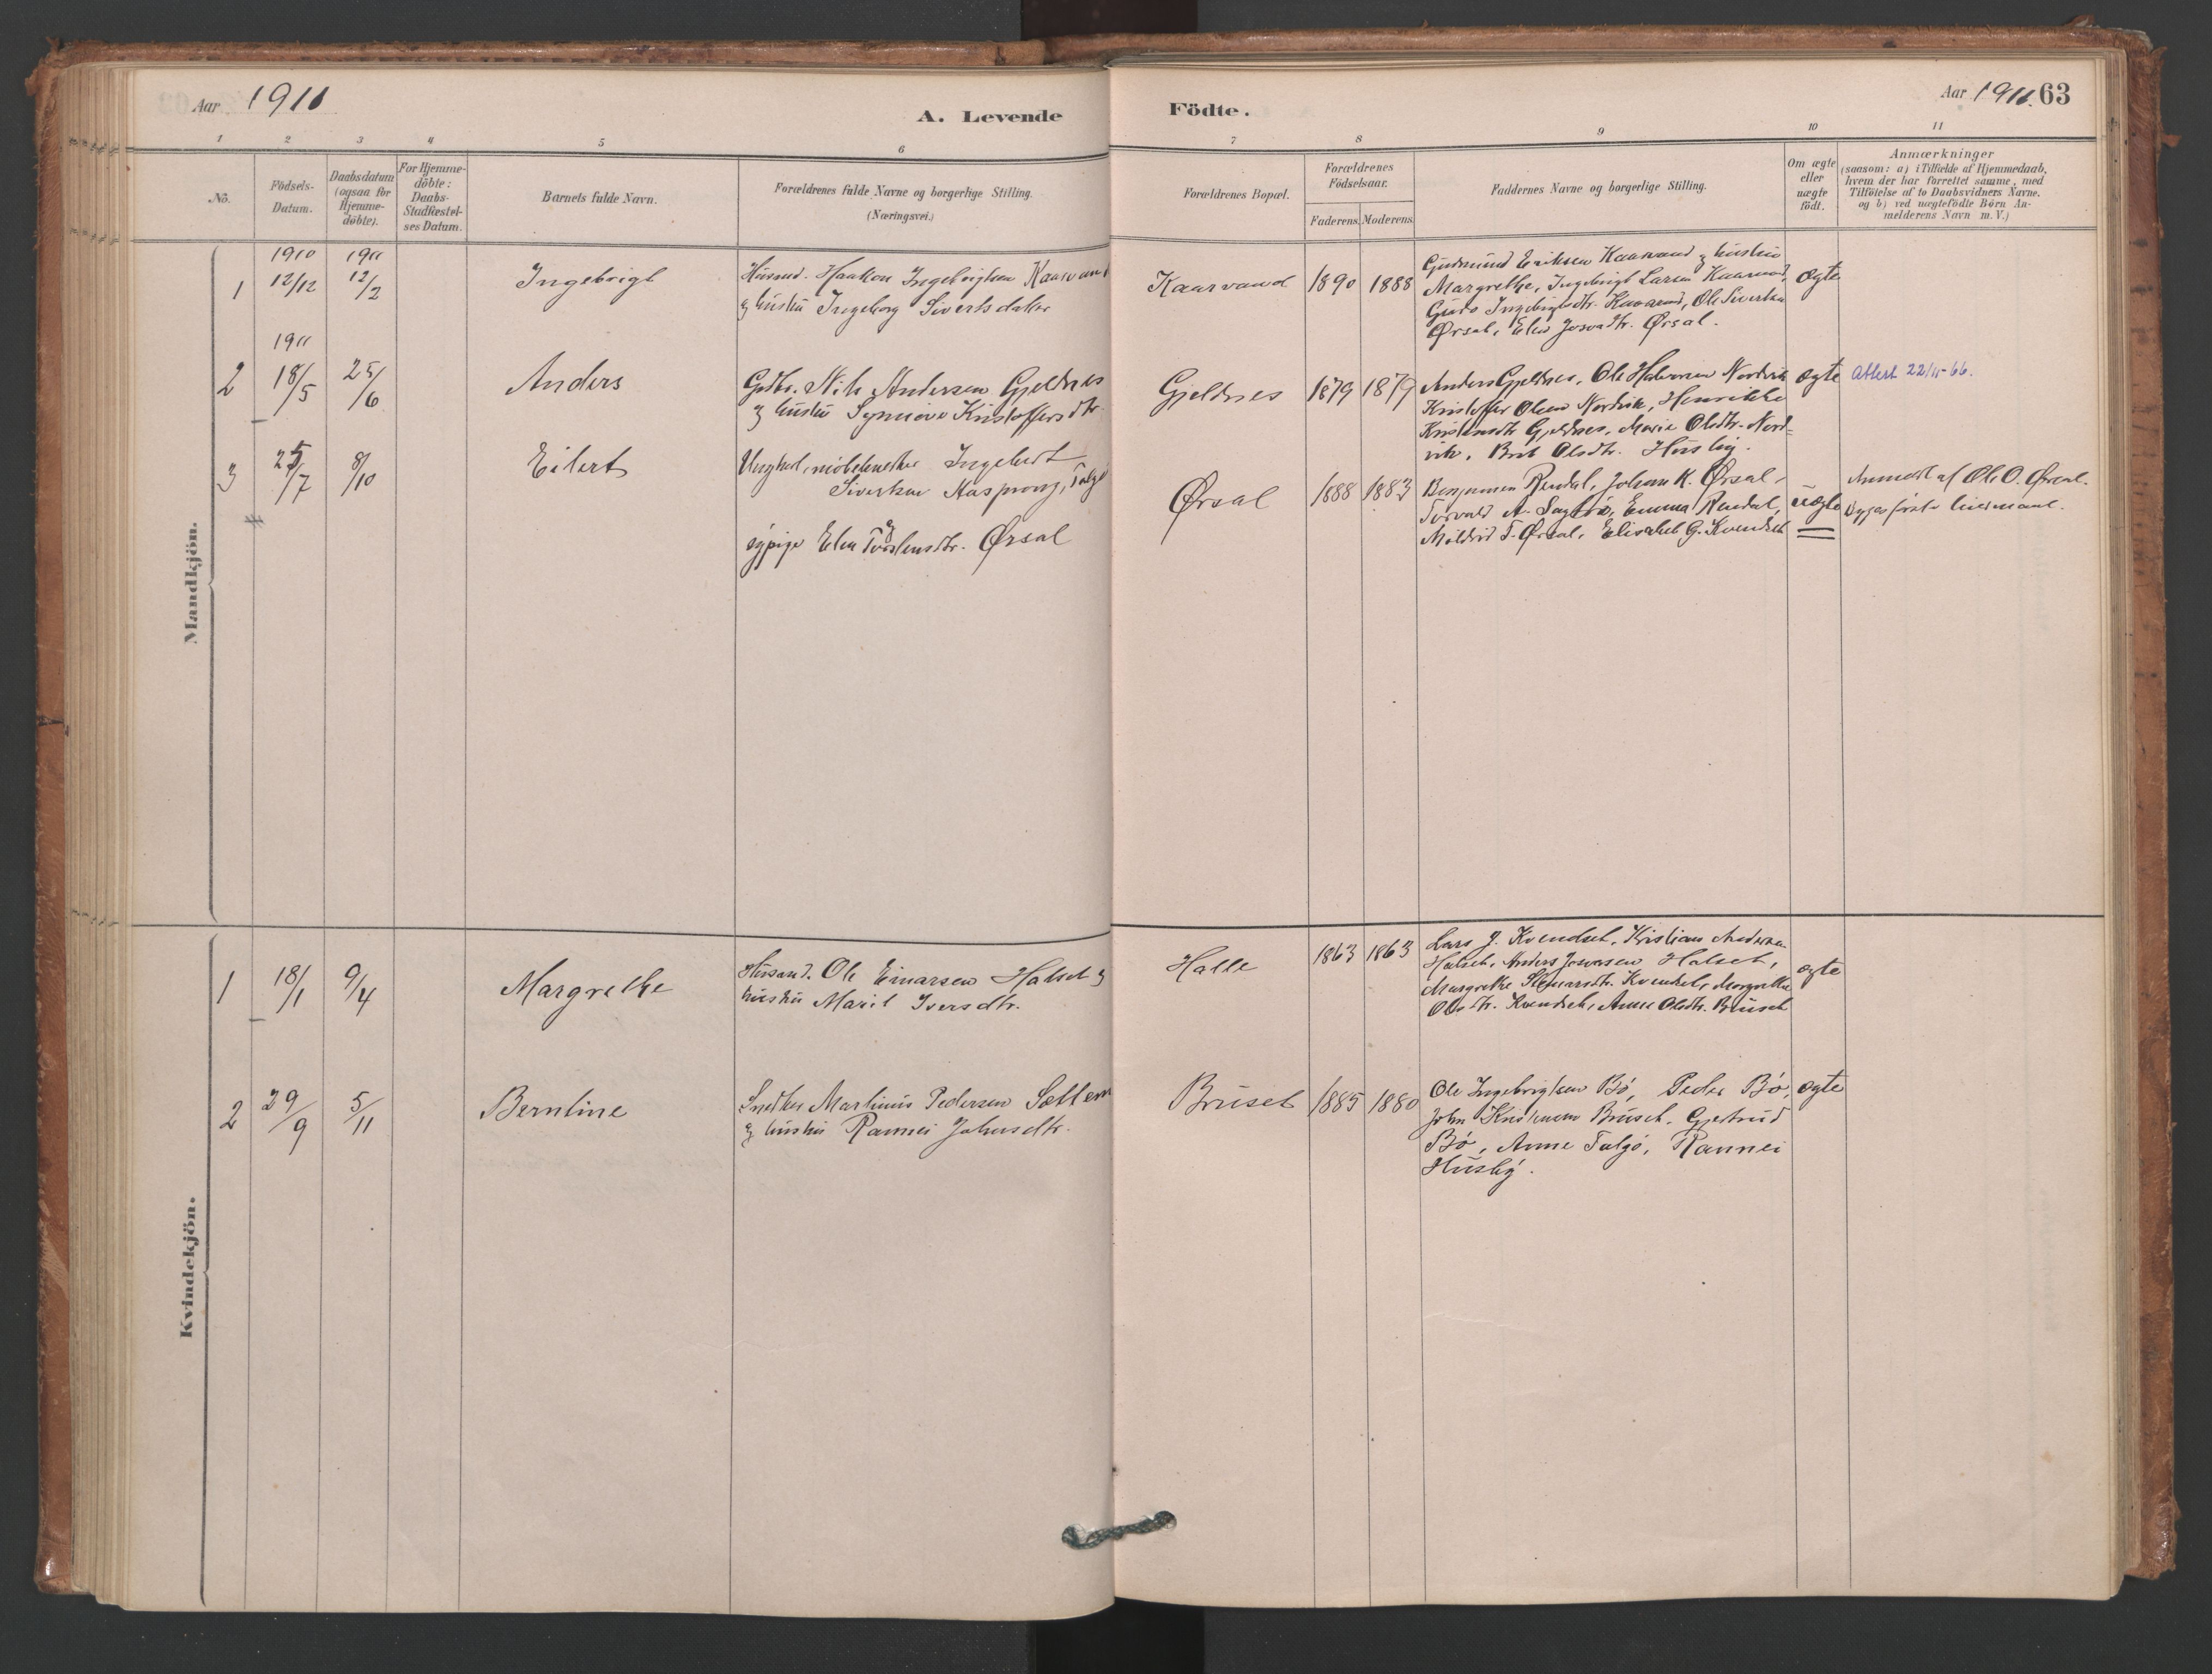 Aar 1911
A. Levende
Födte.
Aar 1911. 63
1 2 3 4 5 6 7 8 9 10 11
No.
Födsels-
Datum.
Daabsdatum
(ogsaa for
Hjemme-
döbte).
For Hjemme-
döbte:
Daabs-
Stadfæstel-
ses Datum.
Barnets fulde Navn.
Forældrenes fulde Navne og borgerlige Stilling.
(Næringsvei.)
Forældrenes Bopæl.
Forældrenes
Födselsaar.
Faderens. Moderens.
Faddernes Navne og borgerlige Stilling.
Om ægte
eller
uægte
födt.
Anmærkninger
(saasom: a) i Tilfælde af Hjemmedaab,
hvem der har forrettet samme, med
Tilföielse af to Daabsvidners Navne.
og b) ved uægtefödte Börn An-
melderens Navn m. V.)
Mandkjön.
1910 1911
1 12/12 12/2 Ingebrigt
Husmd. Haakon Ingebrigtsen Kaarvand
og hustru Ingeborg Sivertsdatter
Kaarvand 1890 1888
Gudmund Eriksen Kaarvand og hustru
Margrethe, Ingebrigt Larsen Kaarvand,
Guro Ingebrigtsdtr. Kaarvand, Ole Sivertsen
Ørsal, Elen Josvadtr. Ørsal.
ægte
1911
2 18/5 25/6 Anders
Gdbr. Nils Andersen Gjeldnes
og hustru Synnöve Kristoffersdtr.
Gjeldnes 1879 1879
Anders Gjeldnes, Ole Halvorsen Nordvik
Kristoffer Olsen Nordvik, Henrikke
Kristensdtr Gjeldnes, Marie Olsdtr. Nord-
vik, Brit Olsdtr. Husby.
ægte
Attest 22/11-66.
3 25/7 8/10 Eilert
Ungkarl, möbelsnedker Ingebert
Sivertsen Aasprong, Talgö
og
sypige Elen Torstensdtr. Ørsal
Ørsal 1888 1883
Benjamin Rendal, Johan K. Ørsal,
Torvald A. Saghö, Emma Rendal,
Mildrid T. Ørsal, Elisabet G. Kvendset
uægte
Anmeldt af Ole O. Ørsal.
Begges første leiermaal.
Kvindekjön.
1 18/1 9/4 Margrethe
Husmd. Ole Einarsen Halset og
hustru Marit Iversdtr.
Halle 1863 1863
Lars J. Kvendset, Kristian Andersen
Halset, Anders Jonassen Halset,
Margrethe Steinarsdtr. Kvendset, Margrethe
Olsdtr. Kvendset, Anne Olsdtr. Bruset
ægte
2 29/9 5/11 Berntine
Snedker Martinus Pedersen Sollem
og hustru Rannei Johnsdtr.
Bruset 1885 1880
Ole Ingebrigtsen Bö, Peder Bö,
John Kristensen Bruset, Gjertrud
Bö, Anne Talgö, Rannei
Husby.
ægte